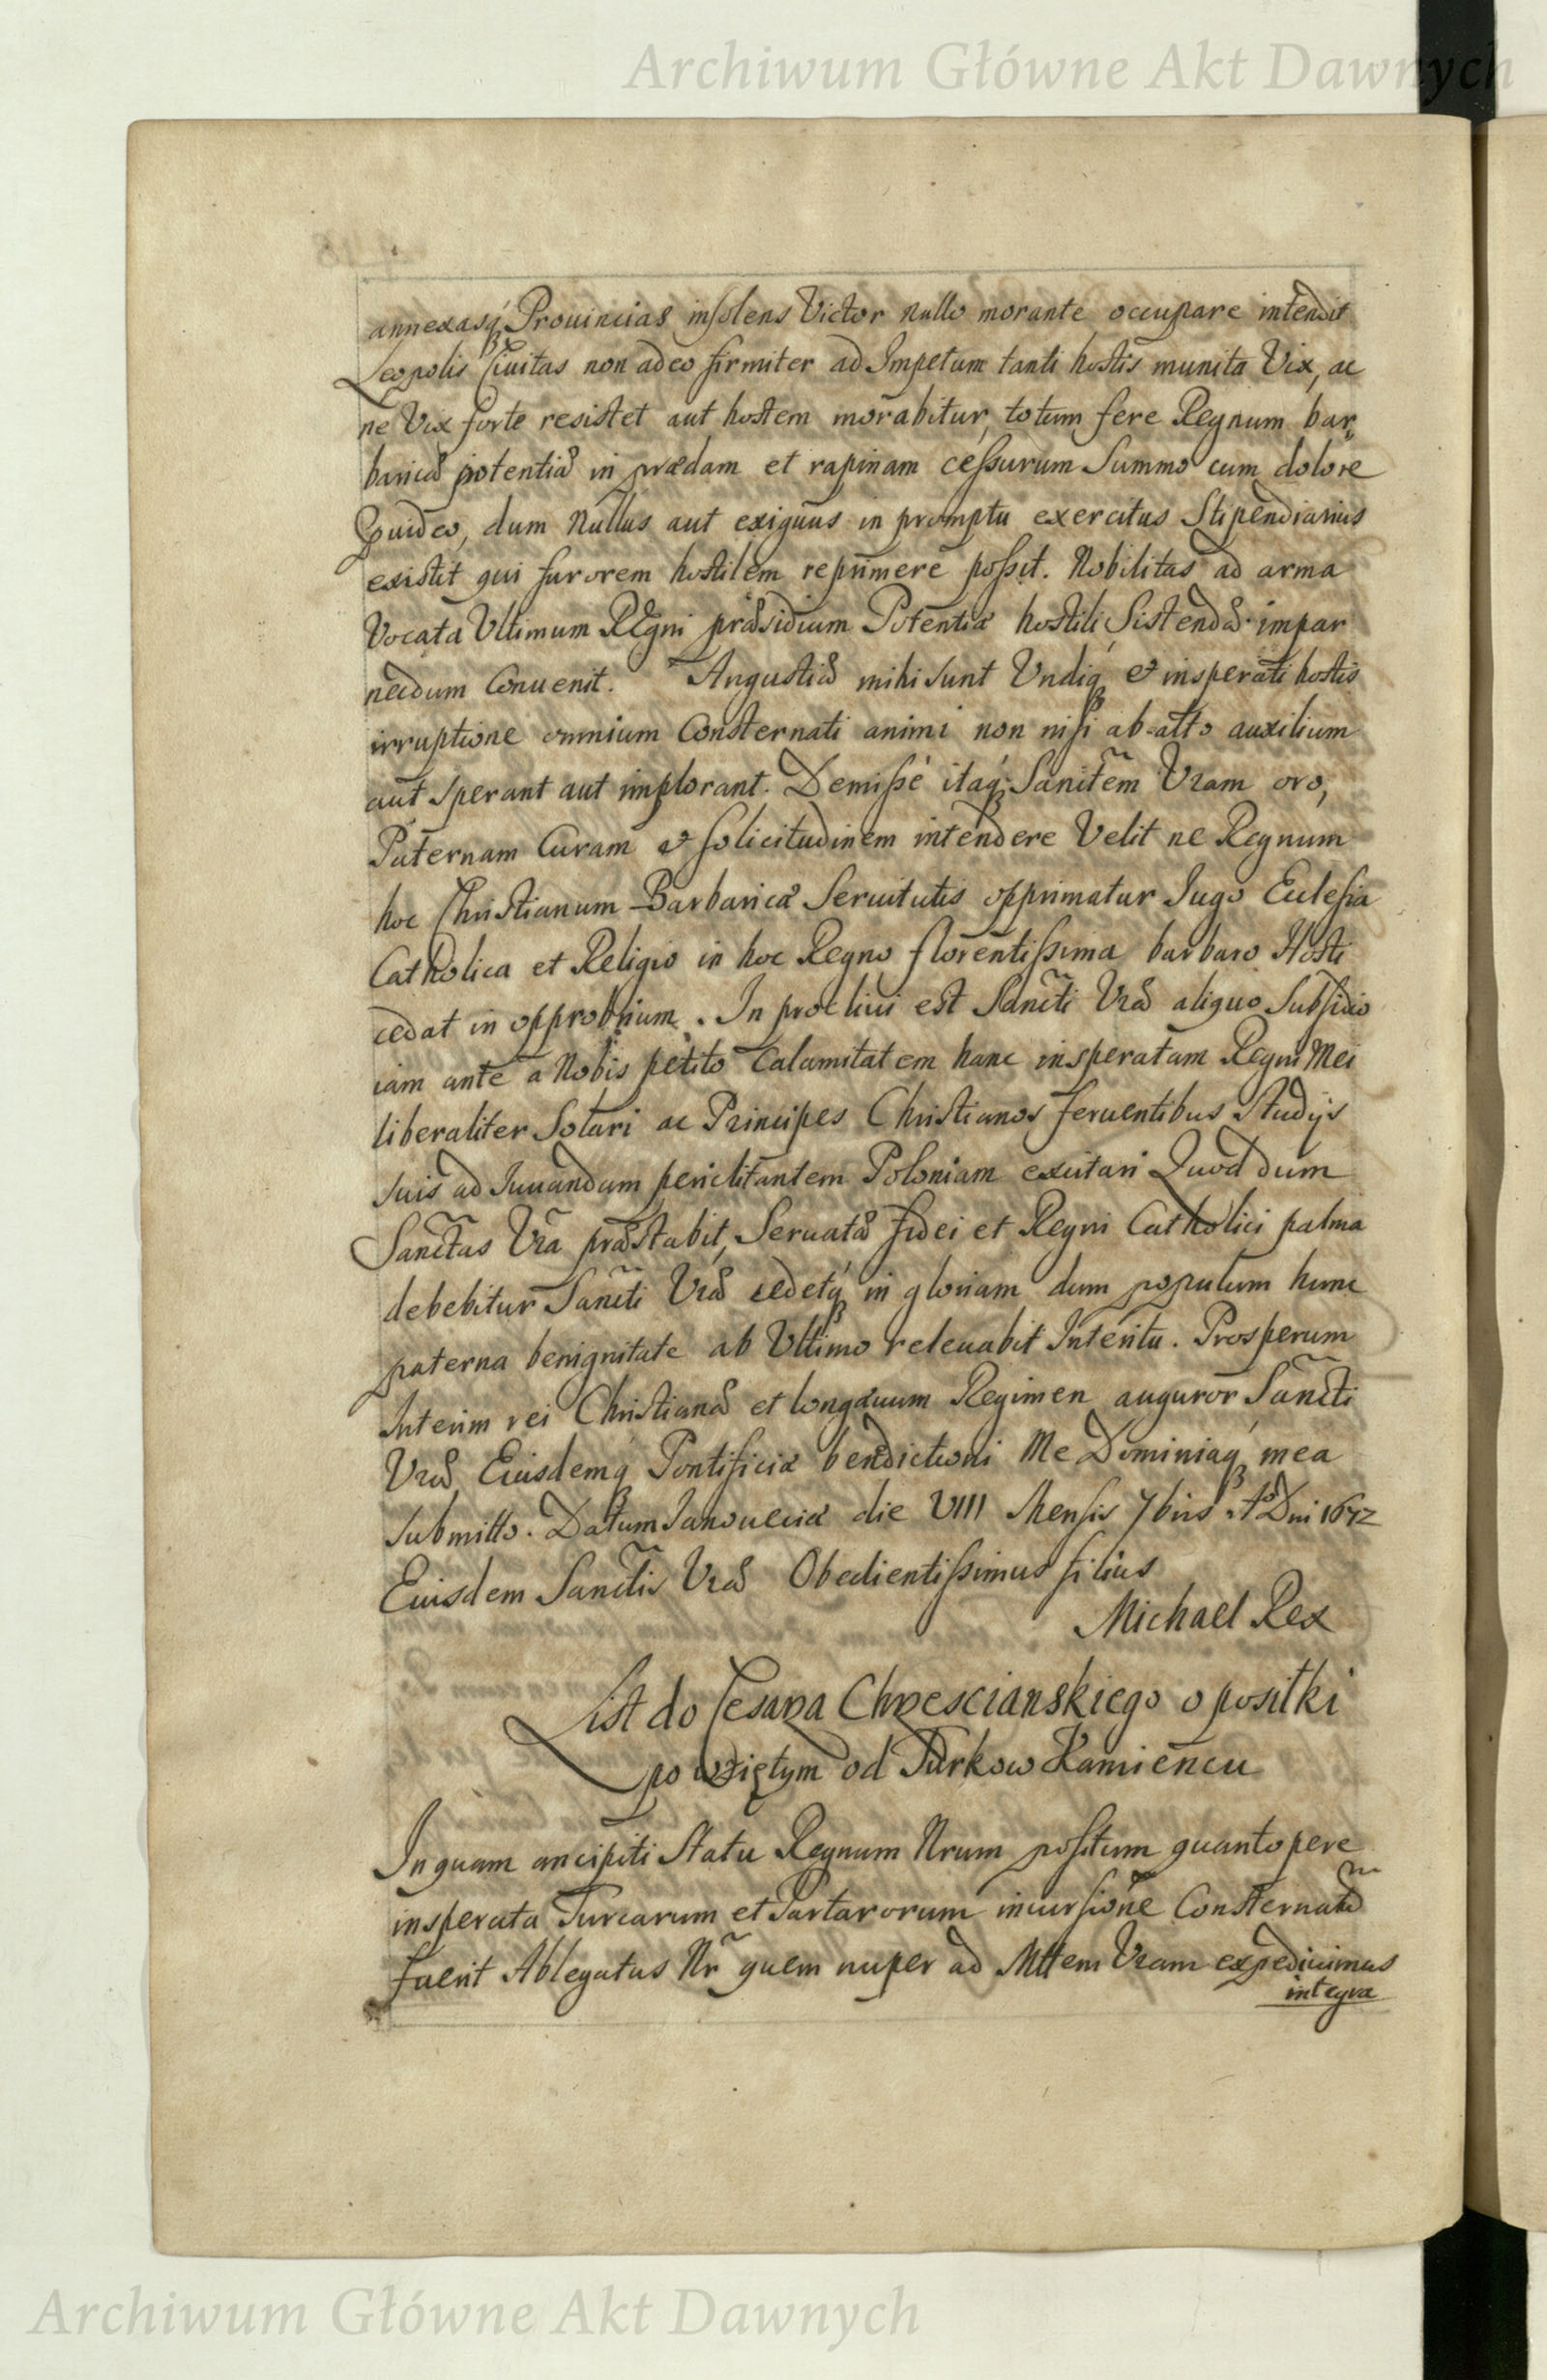 Archiwum Główne Akt Dawnych
annexasq́ꝫ Prouincias insolens Victor nullo morante occupare intendit
Leopolis Ciuitas non adeo firmiter ad Impetum tanti hostis munita Vix, ac
ne Vix forte resistet aut hostem morabitur, totum fere Regnum bar„
baricæ potentiæ in prædam et rapinam cessurum Summo cum dolore
Quideo, dum Nullus aut exiguus in promptu exercitus Stipendiarius
existit qui furorem hostilem reprimere possit. Nobilitas ad arma
Vocata Ultimum Regni præsidium Potentiæ hostili Sistendæ impar
necdum Conuenit. Angustiæ mihi sunt Undiq́ꝫ et insperati hostis
irruptione omnium Consternati animi non nisi ab alto auxilium
aut sperant aut implorant. Demissé itaq́ꝫ Sancitem̃ Vram oro,
Paternam Curam et solicitudinem intendere Velit ne Regnum
hoc Christianum Barbaricæ Seruitutis opprimatur Iugo Eclesia
Catholica et Religio in hoc Regno florentissima barbaro Hosti
cedat in opprobrium. In procliui est Sancti͂ Vræ aliquo Subsidio
iam ante a Nobis petito Calamitatem hanc insperatam Regni Mei
liberaliter Solari ac Principes Christianos feruentibus Studijs
suis ad Iuuandam periclitantem Poloniam excitari Quod dum
Sanctas͂ Vra͂ præstabit, Seruatæ fidei et Regni Catholici palma
debebitur Sancti͂ Vræ cedetq́ꝫ in gloriam dum populum hunc
paterna benignitate ab Ultimo releuabit Interitu. Prosperum
Interim rei Christianæ et longæuum Regimen auguror Sancti͂
Vræ, Eiusdemq́ꝫ Pontificiæ benedictioni Me Dominiaq́ꝫ mea
submitto. Datum Ianoueciæ die VIII Mensis 7bris Aõ Dni 1672
Eiusdem Sanctis͂ Vræ Obedientissimus filius
Michael Rex
List do Cesarza Chrzescianskiego o posilki
po wziętym od Turkow Kamiencu
In quam ancipiti Statu Regnum Nrum positum quantopere
insperata Turcarum et Tartarorum incursione Consternatũ
fuerit Ablegatus Nr͂ quem nuper ad Mttem Vram expediuimus
integra
Archiwum Główne Akt Dawnych